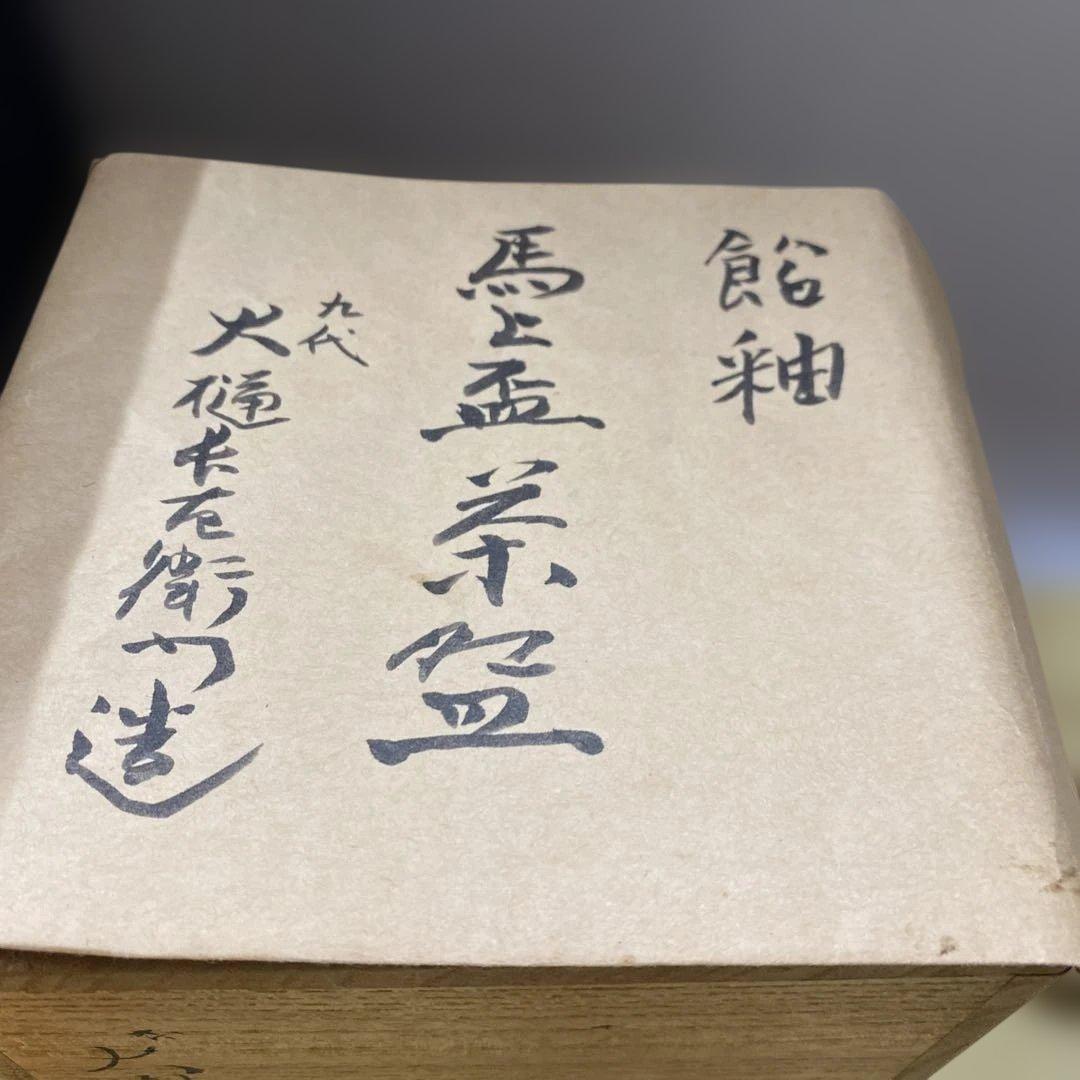 飴釉
馬上盃茶盌
九代
大樋長左衛門造